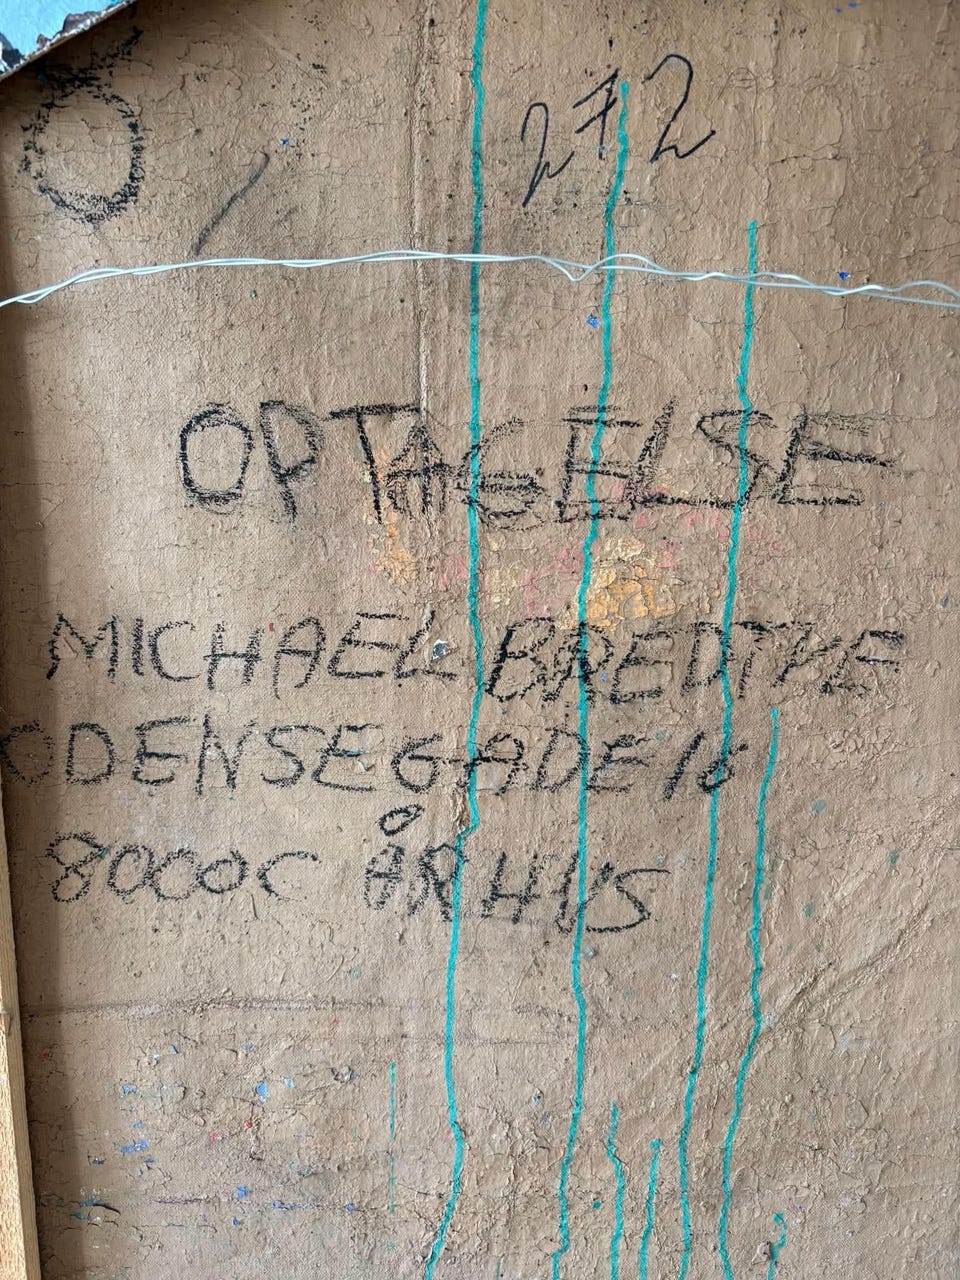 O
272
OPTAGELSE
MICHAEL BREDTVE
ODENSEGADE 16
8000C ÅRHUS